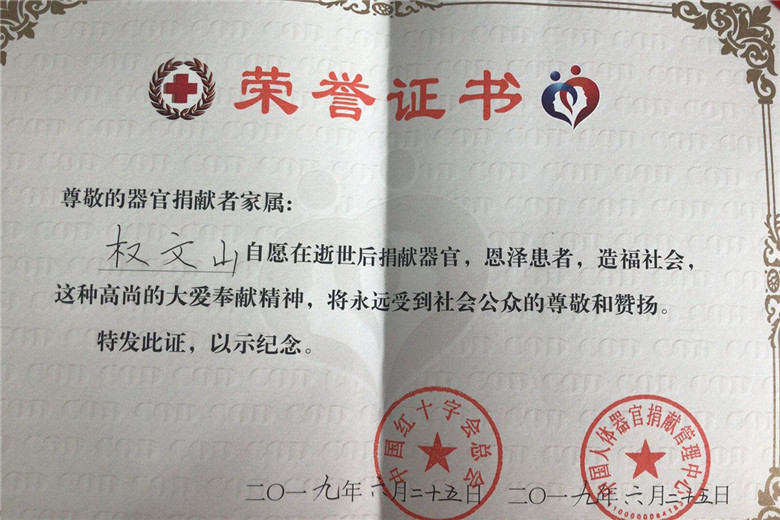 荣誉证书
尊敬的器官捐献者家属：
权文山自愿在逝世后捐献器官，恩泽患者，造福社会，
这种高尚的大爱奉献精神，将永远受到社会公众的尊敬和赞扬。
特发此证，以示纪念。
中国红十字会总会
中国人体器官捐献管理中心
二〇一九年六月二十五日
二〇一九年六月二十五日